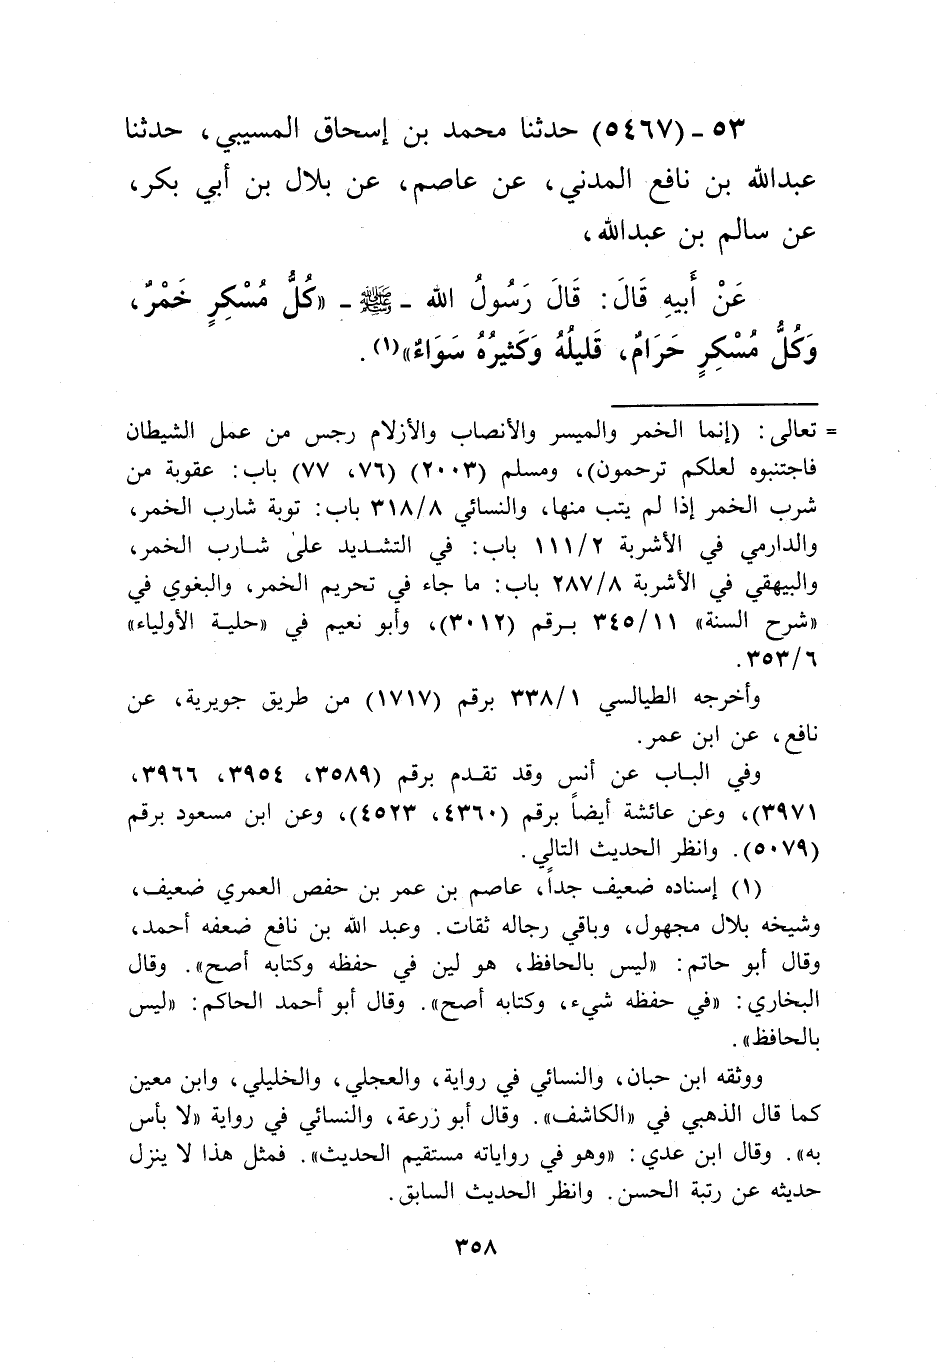 ٥٣ - (٥٤٦٧) حدثنا محمد بن إسحاق المسيبي، حدثنا
عبدالله بن نافع المدني، عن عاصم، عن بلال بن أبي بكر،
عن سالم بن عبدالله،
عَنْ أَبيهِ قَالَ: قَالَ رَسُولُ الله - ﷺ - «كُلُّ مُسْكِرٍ خَمْرٌ،
وَكُلُّ مُسْكِرٍ حَرَامٌ، قَليلُهُ وَكَثيرُهُ سَوَاءٌ»(١).
= تعالى: (إنما الخمر والميسر والأنصاب والأزلام رجس من عمل الشيطان
فاجتنبوه لعلكم ترحمون)، ومسلم (٢٠٠٣) (٧٦، ٧٧) باب: عقوبة من
شرب الخمر إذا لم يتب منها، والنسائي ٣١٨/٨ باب: توبة شارب الخمر،
والدارمي في الأشربة ١١١/٢ باب: في التشديد على شارب الخمر،
والبيهقي في الأشربة ٢٨٧/٨ باب: ما جاء في تحريم الخمر، والبغوي في
«شرح السنة» ٣٤٥/١١ برقم (٣٠١٢)، وأبو نعيم في «حلية الأولياء»
٣٥٣/٦.
وأخرجه الطيالسي ٣٣٨/١ برقم (١٧١٧) من طريق جويرية، عن
نافع، عن ابن عمر.
وفي الباب عن أنس وقد تقدم برقم (٣٥٨٩، ٣٩٥٤، ٣٩٦٦،
٣٩٧١)، وعن عائشة أيضاً برقم (٤٣٦٠، ٤٥٢٣)، وعن ابن مسعود برقم
(٥٠٧٩). وانظر الحديث التالي.
(١) إسناده ضعيف جداً، عاصم بن عمر بن حفص العمري ضعيف،
وشيخه بلال مجهول، وباقي رجاله ثقات. وعبد الله بن نافع ضعفه أحمد،
وقال أبو حاتم: «ليس بالحافظ، هو لين في حفظه وكتابه أصح». وقال
البخاري: «في حفظه شيء، وكتابه أصح». وقال أبو أحمد الحاكم: «ليس
بالحافظ».
ووثقه ابن حبان، والنسائي في رواية، والعجلي، والخليلي، وابن معين
كما قال الذهبي في «الكاشف». وقال أبو زرعة، والنسائي في رواية «لا بأس
به». وقال ابن عدي: «وهو في رواياته مستقيم الحديث». فمثل هذا لا ينزل
حديثه عن رتبة الحسن. وانظر الحديث السابق.
٣٥٨